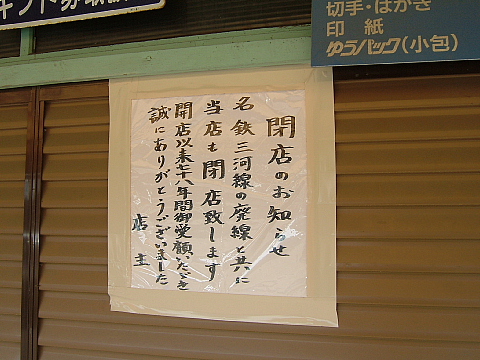 切手・はがき
印紙
ゆうパック(小包)
閉店のお知らせ
名鉄三河線の廃線と共に
当店も閉店致します
開店以来七十八年間御愛顧いただき
誠にありがとうございました
店主